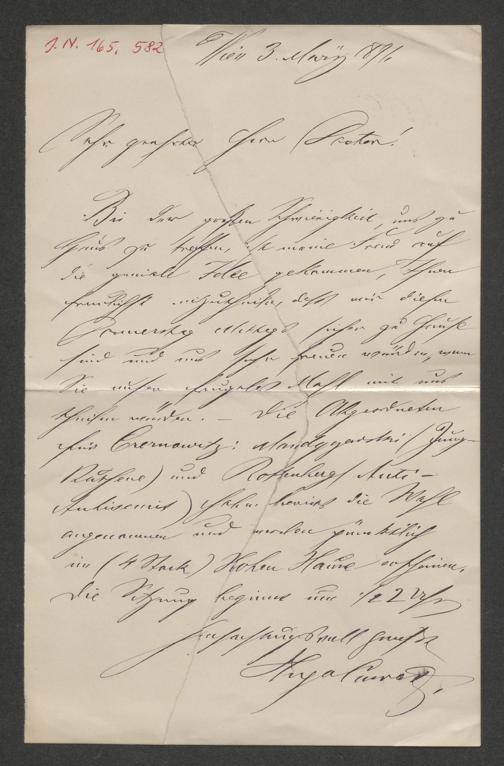 J. N. 165, 582
Wien 3. März 891.
Sehr geehrter Herr Doctor!
Bei der großen Schwierigkeit, uns zu
Haus zu treffen, ist meine Frau auf
die geniale Idee gekommen, Ihnen
mitzutheilen, daß wir diesen
Donnerstag Mittags sicher zu Hause
sind und uns sehr freuen würden, wenn
Sie unser Mahl mit uns
theilen würden. — Die Abgeordneten
aus Czernowitz: Mandyczewski (Jung-
Ruthene) und Rottenberg (Anti-
Antisemit) haben bereits die Wahl
angenommen und werden pünktlich
im (4 Stock) Hohen Hause erscheinen.
Die Sitzung beginnt um 1/2 2 Uhr
Hochachtungsvoll grüßt